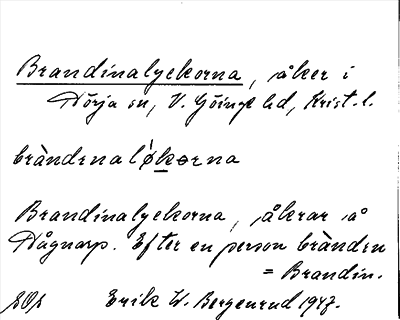 Brandinalyckorna, åker i
Dörja sn, V. Göinge hd, Krist. l.
brä̀ndenalǿkorna
Brandinalyckorna, åkrar å
Dågnarp. Efter en person brä̀nden
= Brandin.
Erik W. Bergenrud 1947.